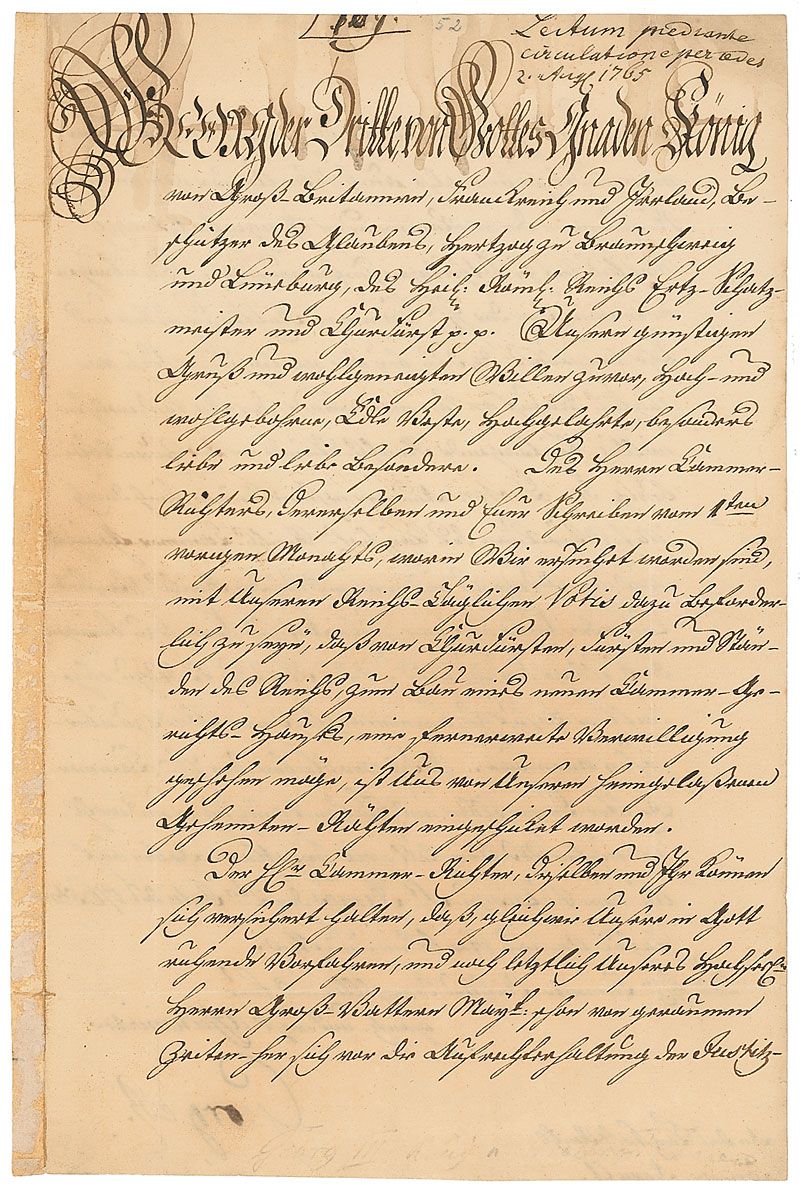 52
Lectum mediante
circulatione per aedes
2. Aug 1765
GEORG der Dritte von Gottes Gnaden König
von Groß-Britannien, Franckreich und Irrland, Be-
schützer des Glaubens, Hertzog zu Braunschweig
und Lüneburg, des Heil: Röm: Reichs Ertz-Schatz-
meister und Churfürst p. p. Unsern günstigen
Gruß und wohlgeneigten Willen zuvor, Hoch- und
wohlgebohrne, Edle Veste, Hochgelahrte, besonders
liebe und liebe Besondere. Des Herrn Cammer-
Richters, derenselben und Eür Schreiben vom 1ten
vorigen Monahts, worin Wir ersuchet worden sind,
mit Unseren Reichs-Täglichen Votis dazu beforder-
lich zu seyn, daß von Churfürsten, Fürsten und Stän-
den des Reichs, zum Bau eines neuen Cammer-Ge-
richts-Hauses, eine fernerweite Verwilligung
geschehen möge, ist Uns von Unseren heimgelaßenen
Geheimten-Räthen eingeschicket worden.
Der Hr Cammer-Richter, dieselben und Ihr können
sich versichert halten, daß, gleichwie Unsere in Gott
ruhende Vorfahren, und noch letztlich Unseres Hochseel.
Herrn Groß-Vattern Mayt: schon von geraumen
Zeiten-her sich vor die Aufrechterhaltung der Justitz-